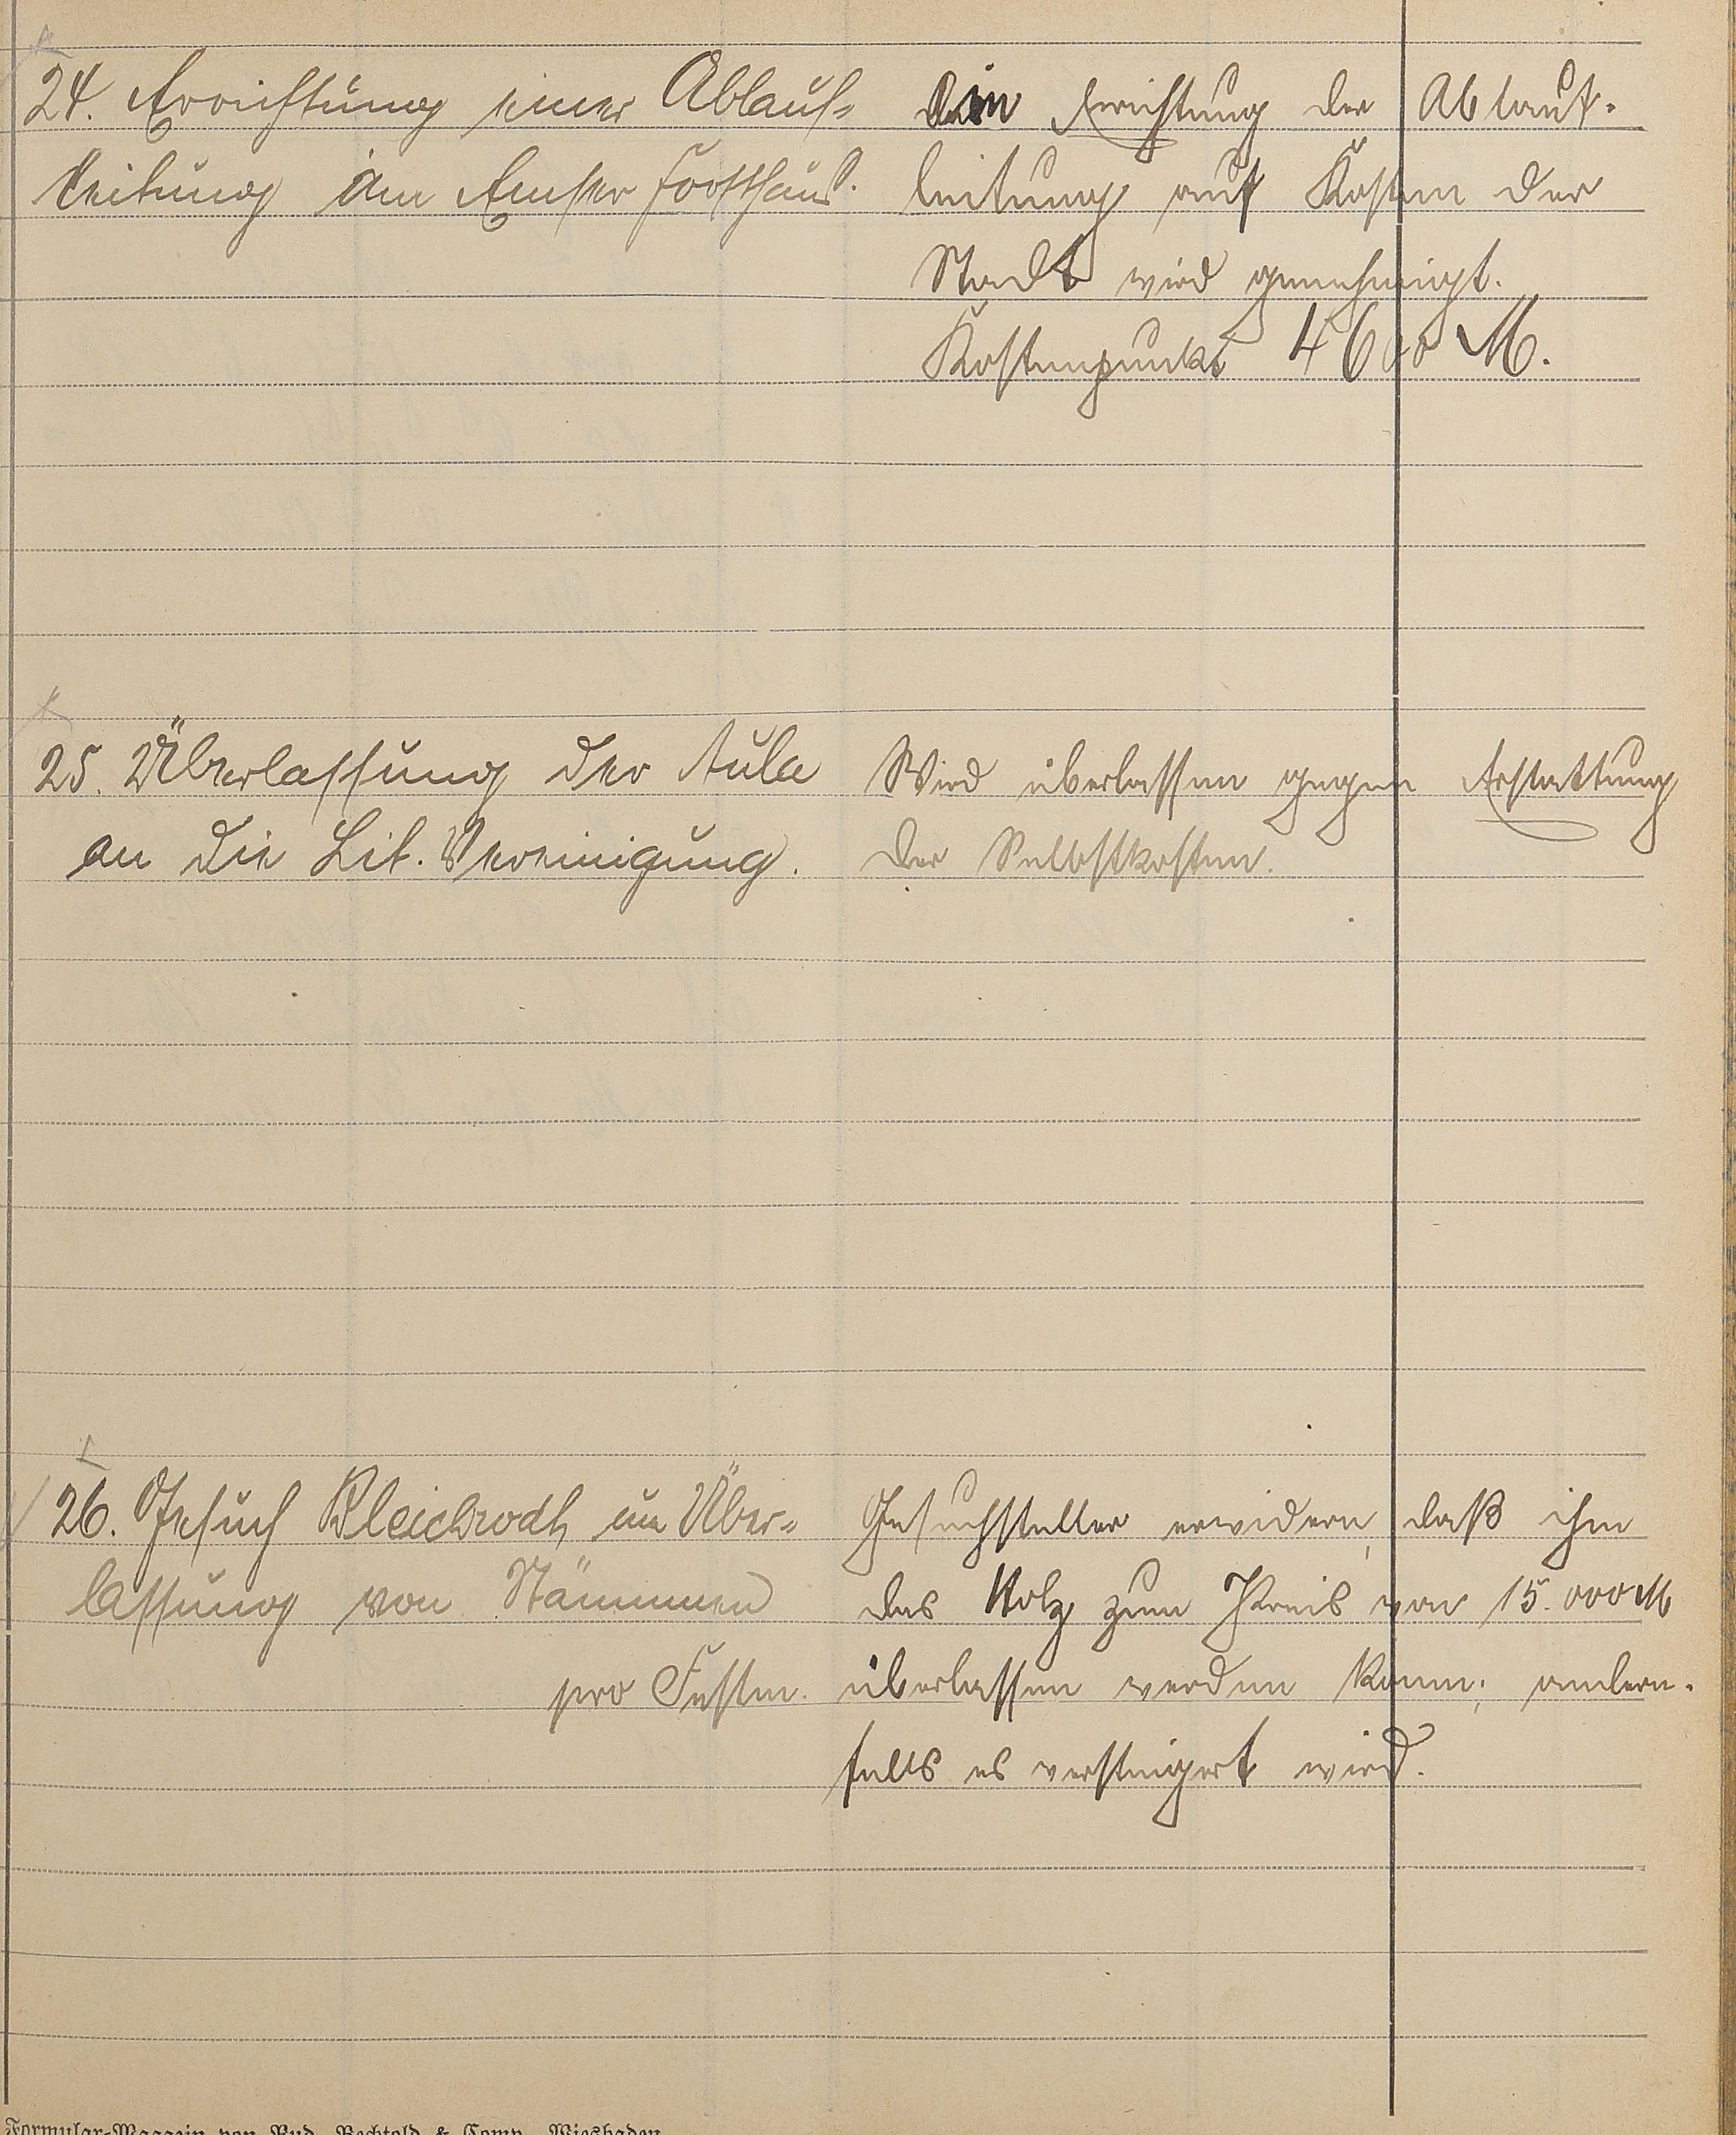 24. Errichtung einer Ablauf-
leitung im Emser Forsthaus.
Die Errichtung der Ablauf-
leitung auf Kosten der
Stadt wird genehmigt.
Kostenpunkt 4600 M.
25. Überlassung der Aula
an die Lit. Vereinigung.
Wird überlassen gegen Erstattung
der Selbstkosten.
26. Gesuch Bleichrodt um Über-
lassung von Stämmen
pro Festm.
Gesuchsteller erwidern, daß ihm
das Holz zum Preis von 15.000 M
überlassen werden kann; andern-
falls es versteigert wird.
Formular-Magazin von Rud. Bechtold & Comp. Wiesbaden